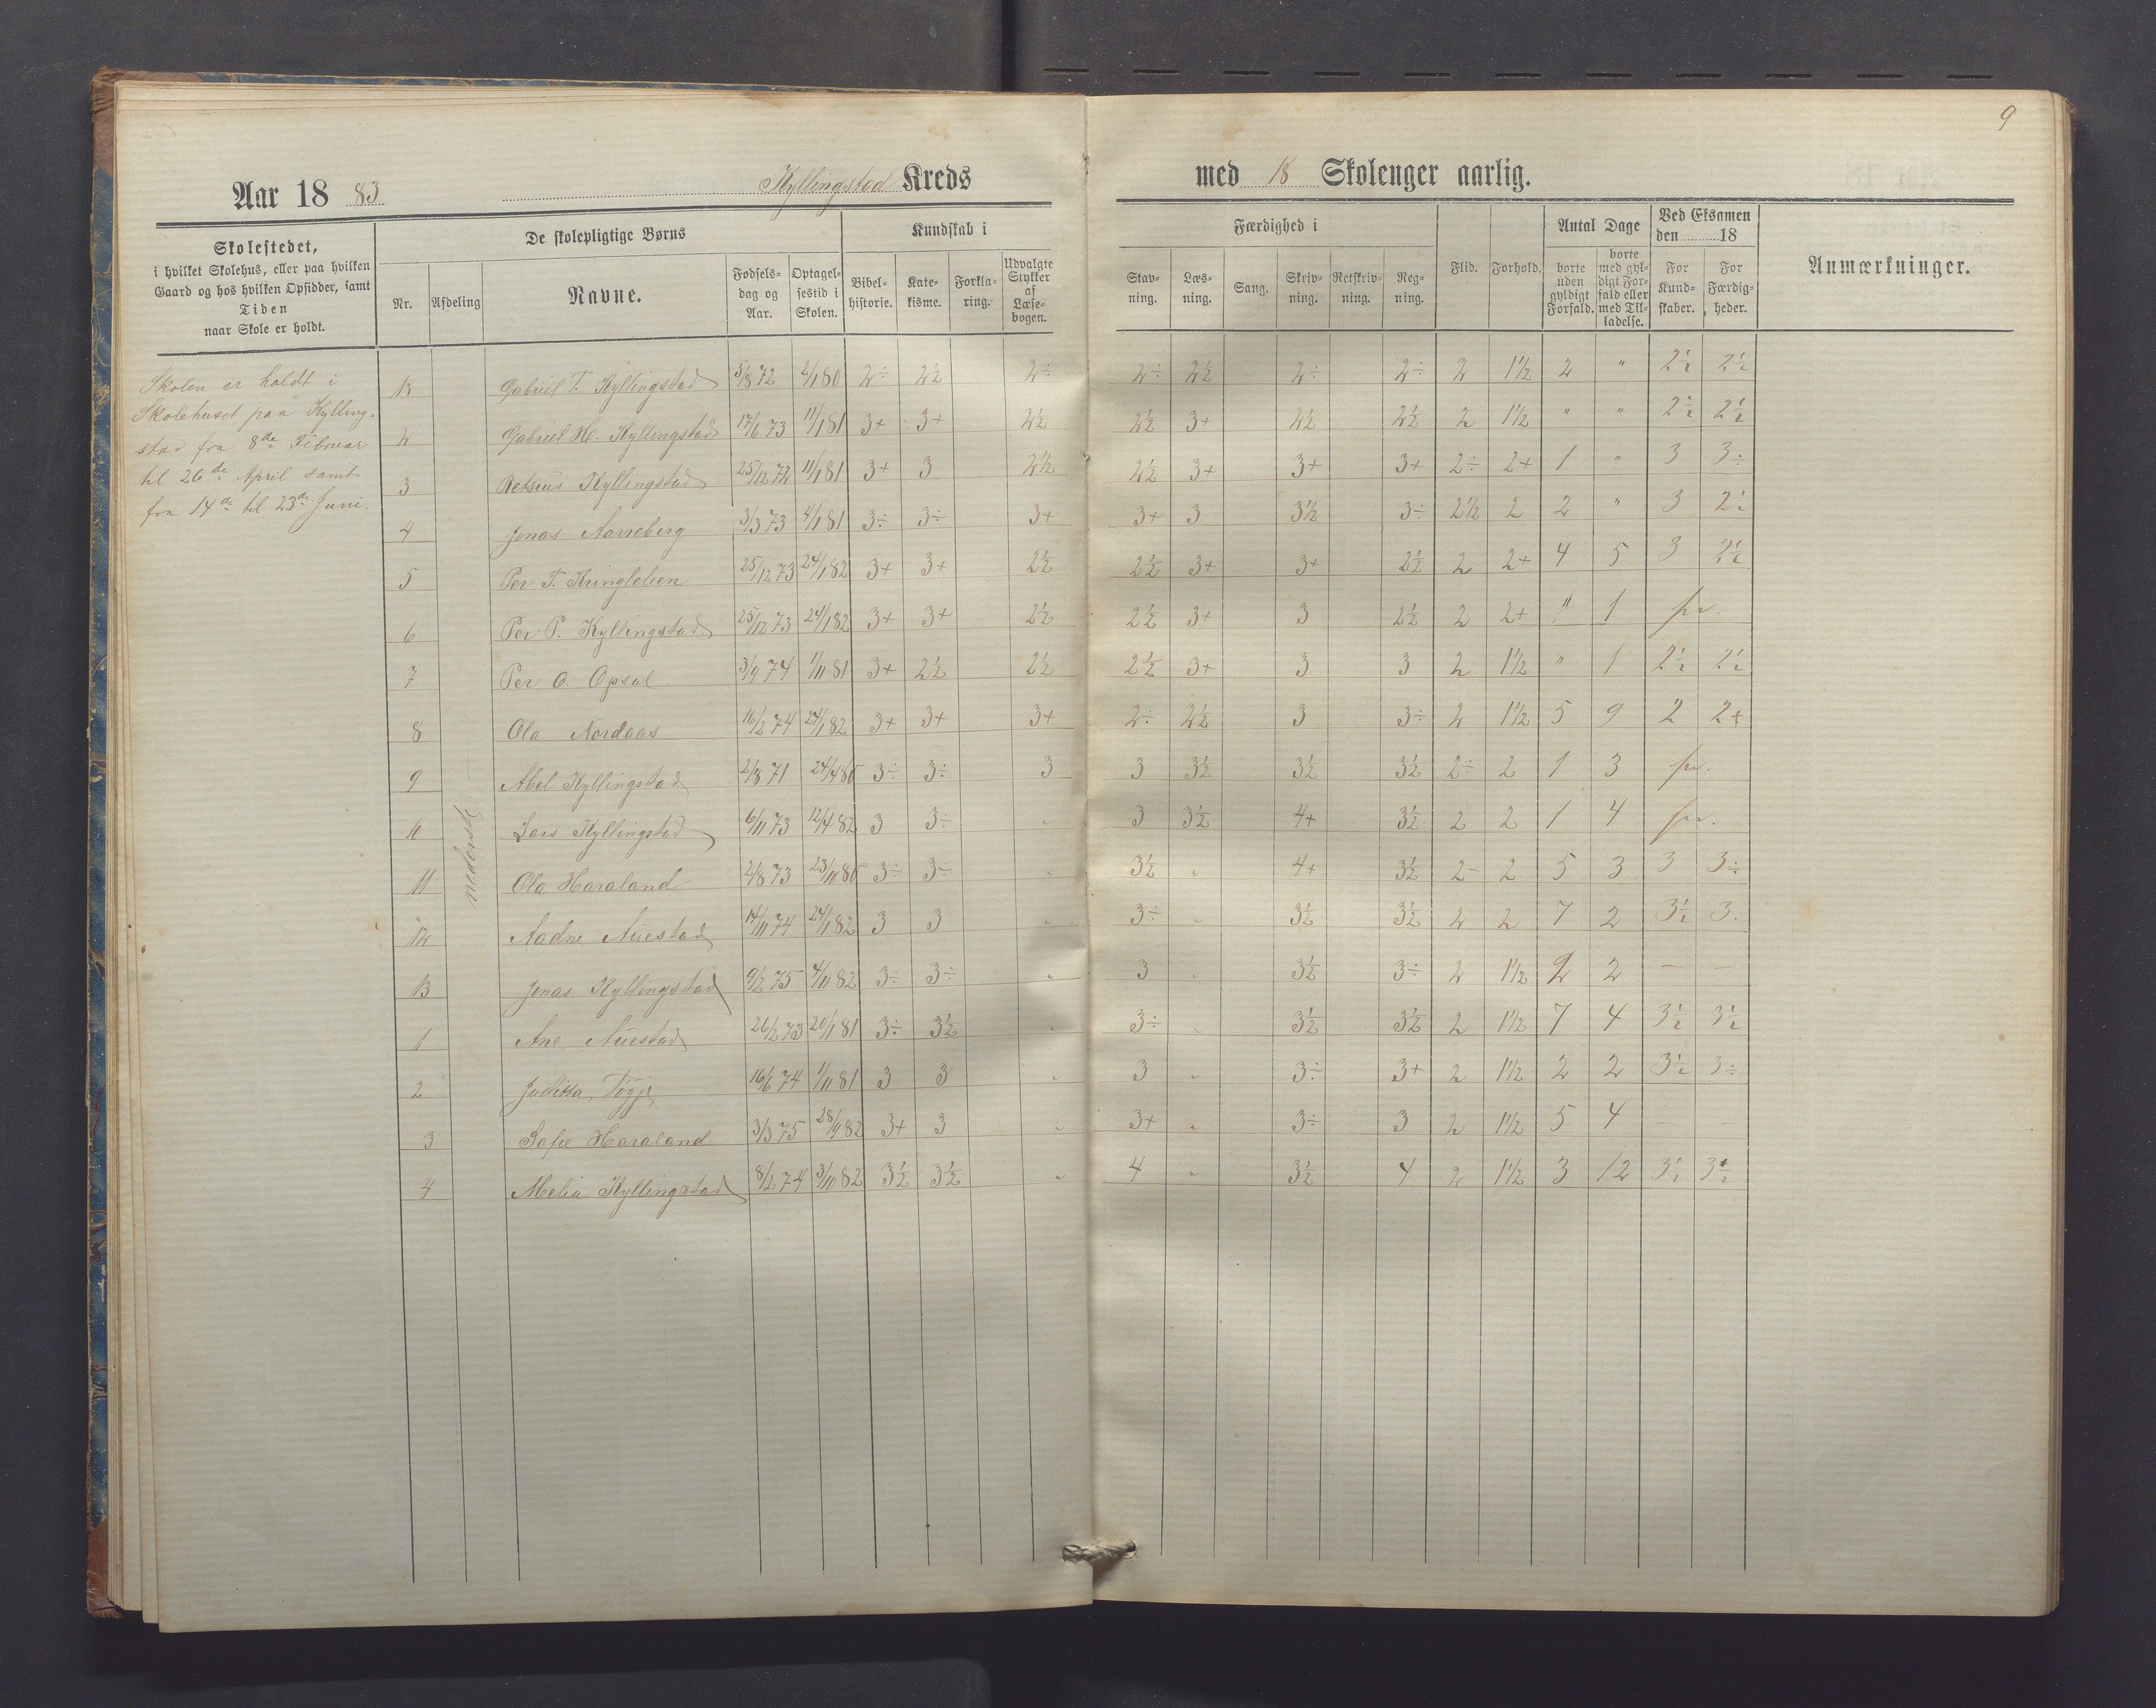 9
Aar 18 83 Kyllingstad Kreds med 18 Skoleuger aarlig.
Skolestedet,
i hvilket Skolehus, eller paa hvilken
Gaard og hos hvilken Opsidder, samt
Tiden
naar Skole er holdt.
De skolepligtige Børns
Nr. Afdeling Navne. Fødselsdag og Aar. Optagelsestid i Skolen.
Kundskab i
Bibelhistorie. Katekisme. Forklaring. Udvalgte Stykker af Læsebogen.
Færdighed i
Stavning. Læsning. Sang. Skrivning. Retskrivning. Regning.
Flid. Forhold.
Antal Dage
borte uden gyldigt Forfald. borte med gyldigt Forfald eller med Tilladelse.
Ved Eksamen
den 18
For Kundskaber. For Færdigheder.
Anmærkninger.
Skolen er holdt i
Skolehuset paa Kylling-
stad fra 8de Februar
til 26de April samt
fra 14de til 23de Juni.
nederste
Gabriel T. Kyllingstad 5/8 72 2/1 80 2÷ 2½ 2÷ 2÷ 2½ 2÷ 2÷ 2 1½ 2 " 2½ 2½
2 Gabriel H. Kyllingstad 17/6 73 11/1 81 3+ 3+ 2½ 2½ 3+ 2½ 2½ 2 1½ " " 2½ 2½
3 Kyllingstad 25/12 72 11/1 81 3+ 3 2½ 2½ 3+ 3+ 3+ 2÷ 2+ 1 " 3 3÷
4 Jonas 3/3 73 4/1 81 3÷ 3÷ 3+ 3+ 3 3½ 3÷ 2½ 2 2 " 3 2½
5 Per T. 25/12 73 24/1 82 3+ 3+ 2½ 2½ 3+ 3+ 2½ 2 2+ 4 5 3 2½
6 Per P. Kyllingstad 25/12 73 24/1 82 3+ 3+ 2½ 2½ 3+ 3 2½ 2 2+ " 1 fr.
7 Per O. Opsal 3/9 74 1/11 81 3+ 2½ 2½ 2½ 3+ 3 3 2 1½ " 1 2½ 2½
8 Ola Nordaas 16/2 74 24/1 82 3+ 3+ 3+ 2÷ 2½ 3 3÷ 2 1½ 5 9 2 2+
9 Abel Kyllingstad 2/8 71 24/4 80 3÷ 3÷ 3 3 3½ 3½ 3½ 2÷ 2 1 3 fr.
10 Lars Kyllingstad 6/11 73 12/4 82 3 3÷ " 3 3½ 4+ 3½ 2 2 1 4 fr.
11 Ola Haraland 2/8 73 23/10 80 3÷ 3÷ " 3½ " 4+ 3½ 2÷ 2 5 3 3 3÷
12 Aadne Auestad 14/11 74 24/1 82 3 3 " 3÷ " 3½ 3½ 2 2 7 2 3½ 3
13 Jonas Kyllingstad 9/2 75 4/11 82 3÷ 3÷ " 3 " 3½ 3÷ 2 1½ 2 2 — —
1 Ane Auestad 26/2 73 20/1 81 3÷ 3½ " 3÷ " 3½ 3½ 2 1½ 7 4 3½ 3½
2 Juditta Tøgje 16/6 74 1/11 81 3 3 " 3 " 3÷ 3+ 2 1½ 2 2 3½ 3÷
3 Safie Haraland 3/3 75 28/9 82 3+ 3 " 3+ " 3÷ 3 2 1½ 5 4 — —
4 Melia Kyllingstad 8/2 74 3/10 82 3½ 3½ " 4 " 3½ 4 2 1½ 3 12 3½ 3½